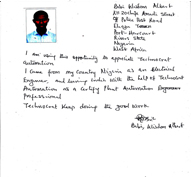 Bobi Wisdom Albert
Off Police Post Road
Elega Town
Port-Harcourt
Rivers State
Nigeria
West Africa
I am using this opportunity to appreciate Technocrat
Automation
I came from my Country Nigeria as an Electrical
Engineer, and leaving India with the help of Technocrat
Automation as a Certify Plant Automation Engineer
Professional
Technocrat Keep doing the good work
Bobi, Wisdom Albert